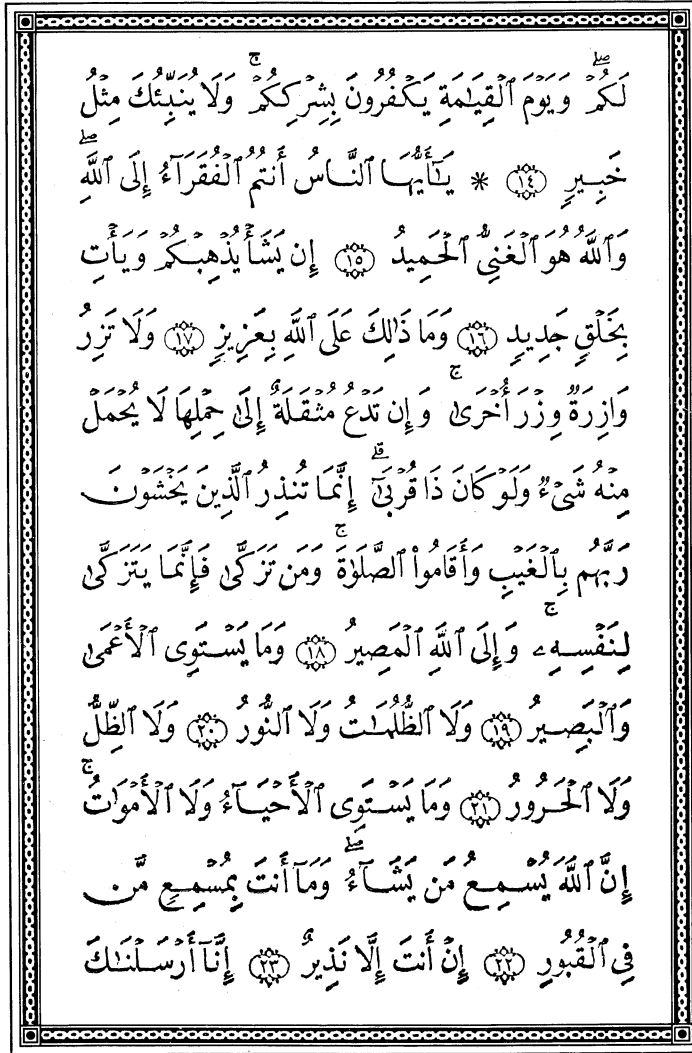 لَكُمْۖ وَيَوْمَ ٱلْقِيَٰمَةِ يَكْفُرُونَ بِشِرْكِكُمْۚ وَلَا يُنَبِّئُكَ مِثْلُ
خَبِيرٍ ١٤ * يَٰٓأَيُّهَا ٱلنَّاسُ أَنتُمُ ٱلْفُقَرَآءُ إِلَى ٱللَّهِۖ
وَٱللَّهُ هُوَ ٱلْغَنِىُّ ٱلْحَمِيدُ ١٥ إِن يَشَأْ يُذْهِبْكُمْ وَيَأْتِ
بِخَلْقٍ جَدِيدٍ ١٦ وَمَا ذَٰلِكَ عَلَى ٱللَّهِ بِعَزِيزٍ ١٧ وَلَا تَزِرُ
وَازِرَةٌ وِزْرَ أُخْرَىٰۚ وَإِن تَدْعُ مُثْقَلَةٌ إِلَىٰ حِمْلِهَا لَا يُحْمَلْ
مِنْهُ شَىْءٌ وَلَوْ كَانَ ذَا قُرْبَىٰٓۗ إِنَّمَا تُنذِرُ ٱلَّذِينَ يَخْشَوْنَ
رَبَّهُم بِٱلْغَيْبِ وَأَقَامُوا۟ ٱلصَّلَوٰةَۚ وَمَن تَزَكَّىٰ فَإِنَّمَا يَتَزَكَّىٰ
لِنَفْسِهِۦۚ وَإِلَى ٱللَّهِ ٱلْمَصِيرُ ١٨ وَمَا يَسْتَوِى ٱلْأَعْمَىٰ
وَٱلْبَصِيرُ ١٩ وَلَا ٱلظُّلُمَٰتُ وَلَا ٱلنُّورُ ٢٠ وَلَا ٱلظِّلُّ
وَلَا ٱلْحَرُورُ ٢١ وَمَا يَسْتَوِى ٱلْأَحْيَآءُ وَلَا ٱلْأَمْوَٰتُۚ
إِنَّ ٱللَّهَ يُسْمِعُ مَن يَشَآءُۖ وَمَآ أَنتَ بِمُسْمِعٍ مَّن
فِى ٱلْقُبُورِ ٢٢ إِنْ أَنتَ إِلَّا نَذِيرٌ ٢٣ إِنَّآ أَرْسَلْنَٰكَ